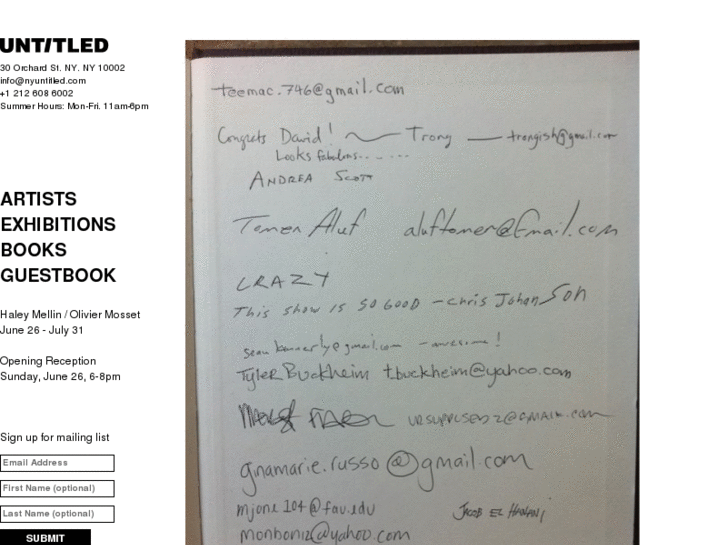 UNTITLED
30 Orchard St. NY. NY 10002
info@nyuntitled.com
+1 212 608 6002
Summer Hours: Mon-Fri. 11am-6pm
ARTISTS
EXHIBITIONS
BOOKS
GUESTBOOK
Haley Mellin / Olivier Mosset
June 26 - July 31
Opening Reception
Sunday, June 26, 6-8pm
Sign up for mailing list
Email Address
First Name (optional)
Last Name (optional)
SUBMIT
teemac.746@gmail.com
Congrats David! Trong trongish@gmail.com
Looks fabulous......
ANDREA SCOTT
Tamer Aluf aluftomer@Gmail.com
CRAZY
This show is so GOOD - chris Johanson
- awesome!
Tyler Buckheim tbuckheim@yahoo.com
ginamarie.russo@gmail.com
mjone104@fau.edu JACOB EL HANANI
monboniz@yahoo.com